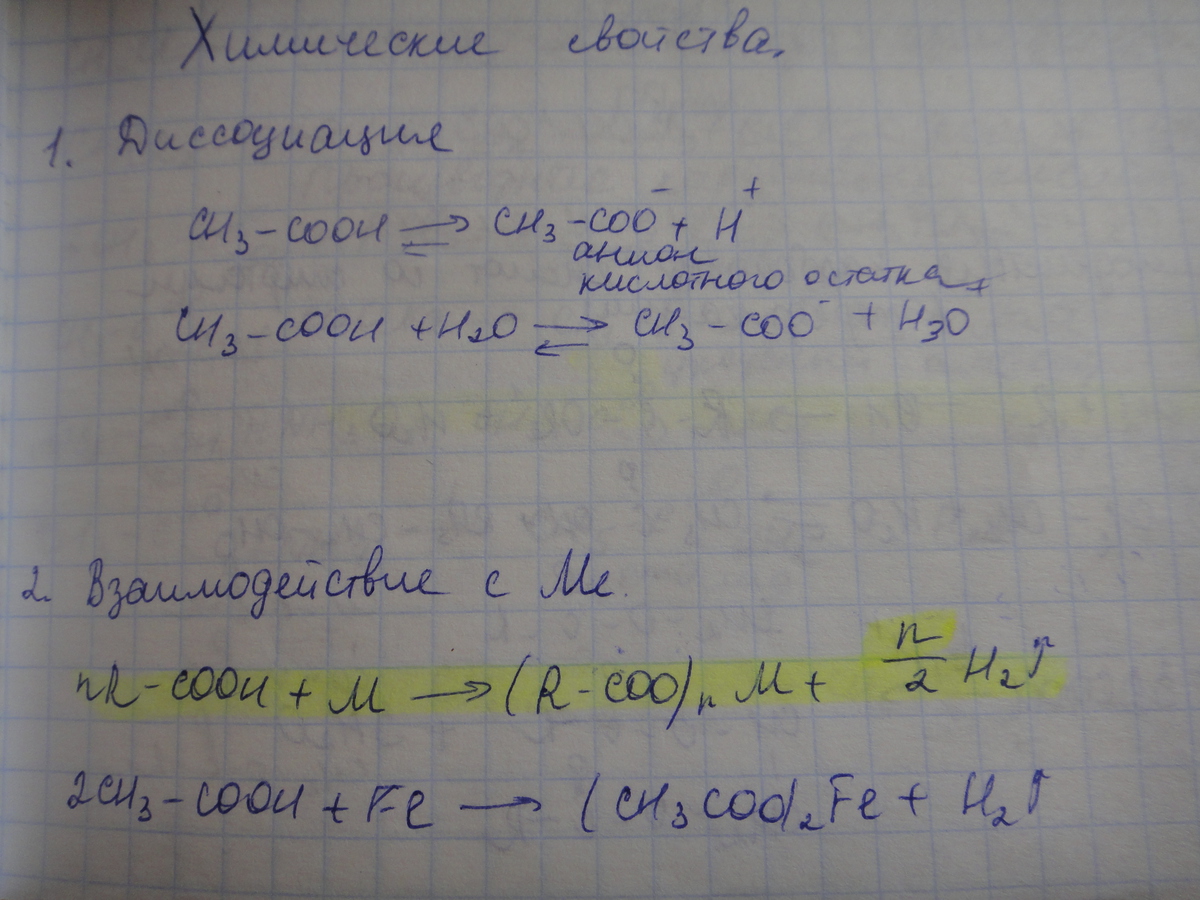 Химические свойства.
1. Диссоциация
CH₃-COOH ⇄ CH₃-COO⁻ + H⁺
анион
кислотного остатка
CH₃-COOH + H₂O ⇄ CH₃-COO⁻ + H₃O⁺
2. Взаимодействие с Me.
nR-COOH + M → (R-COO)ₙM + n/2 H₂↑
2CH₃-COOH + Fe → (CH₃COO)₂Fe + H₂↑